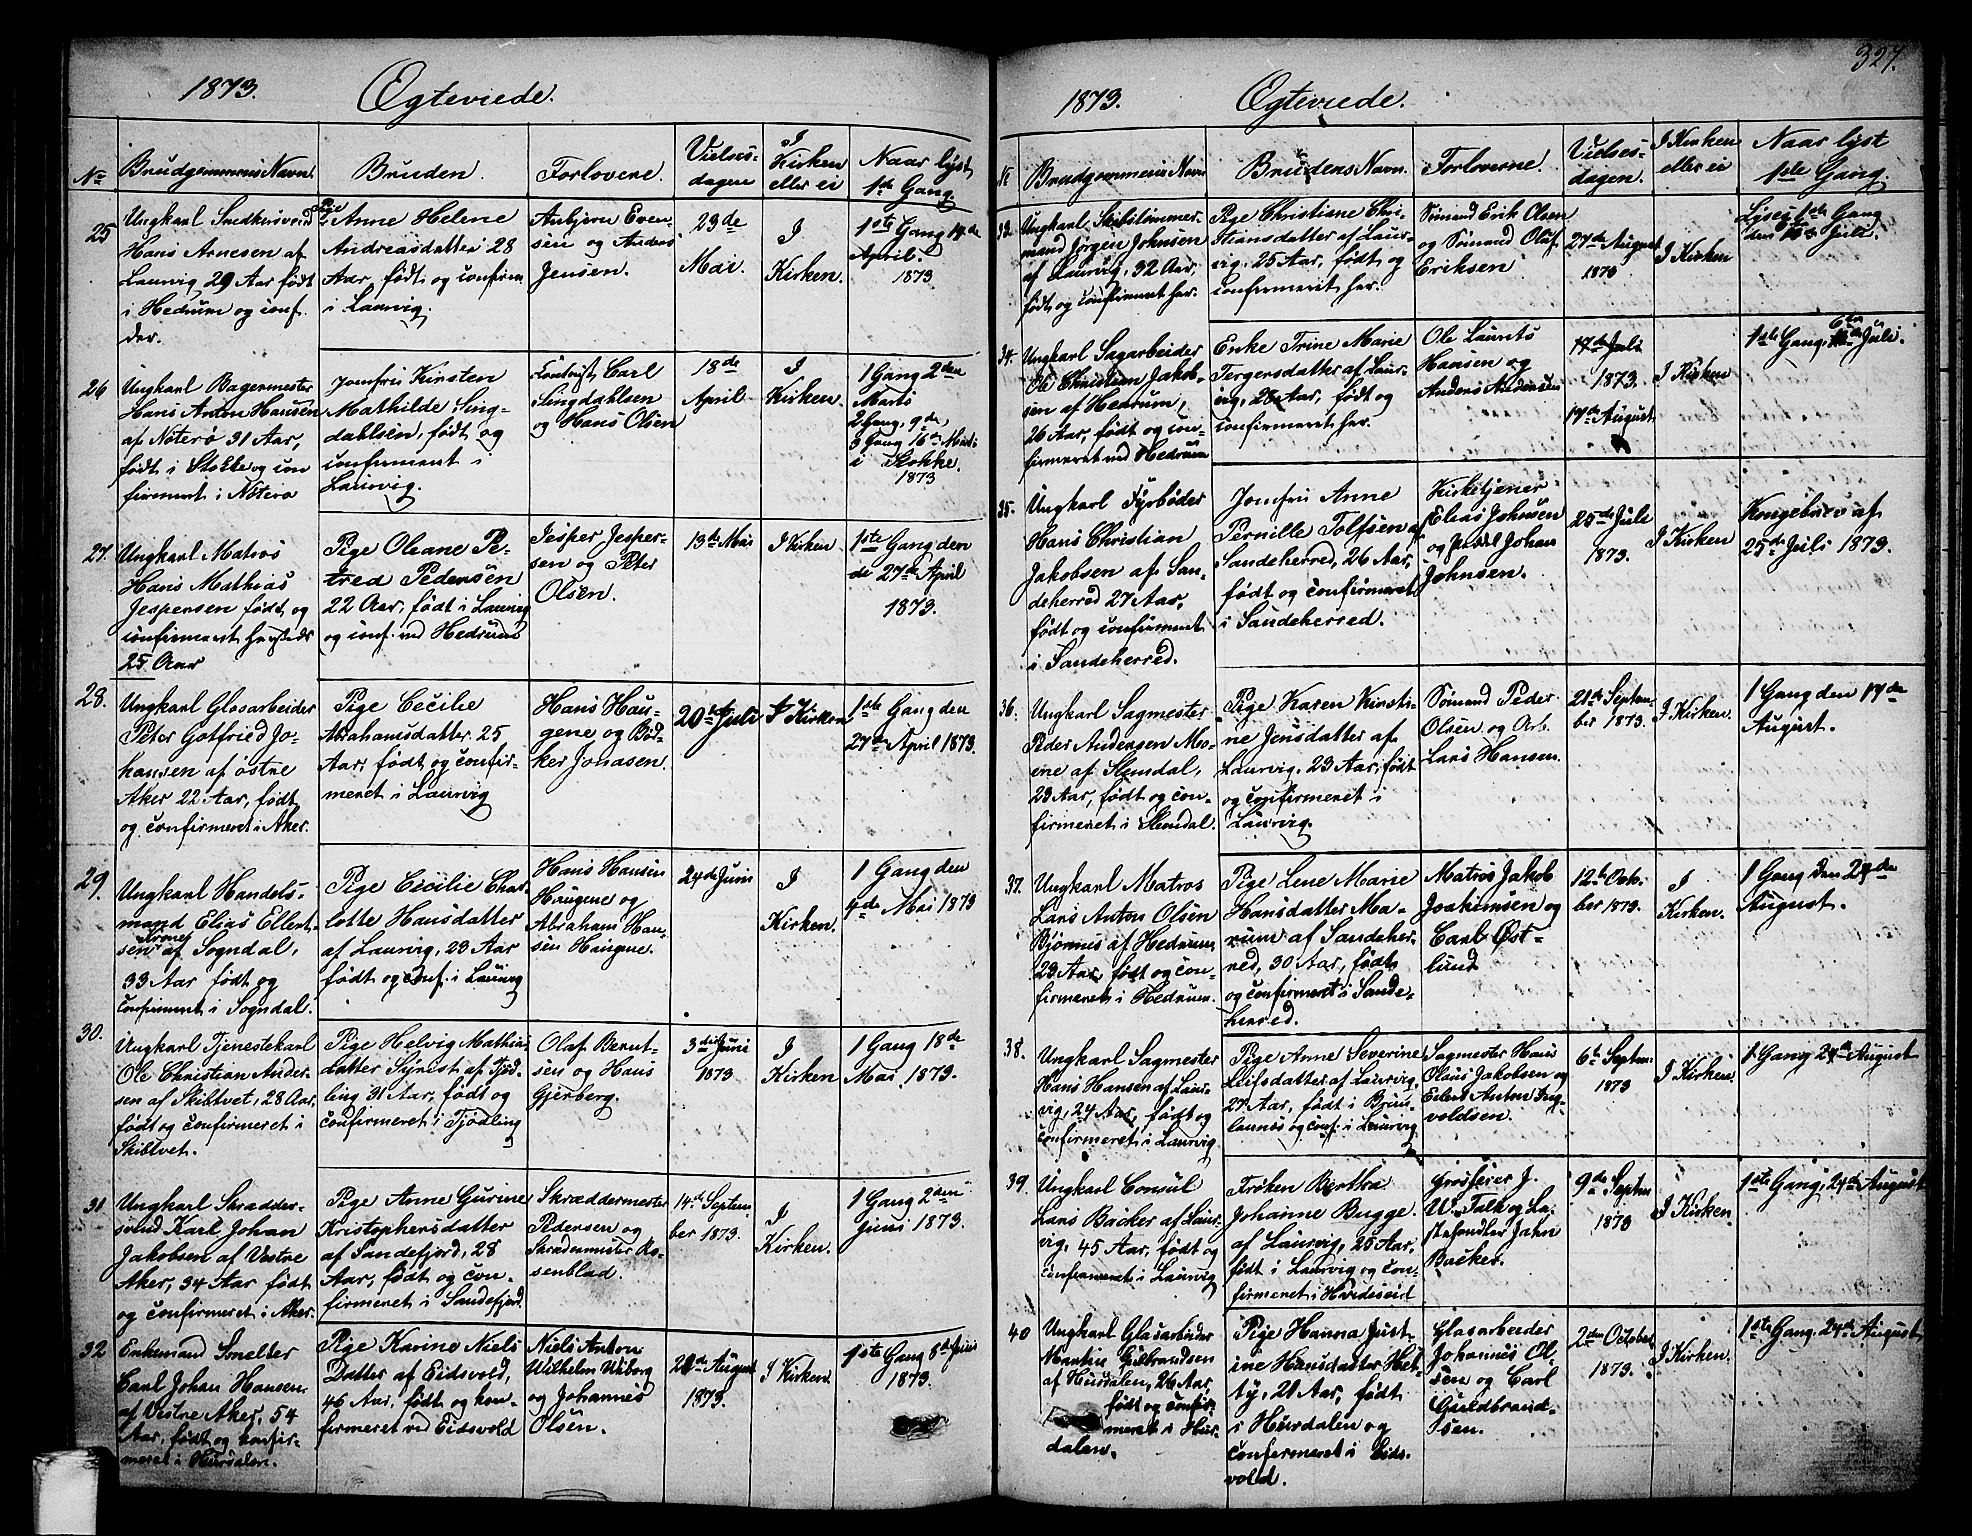 1873. Ægteviede.
No
Brudgommens Navn.
Bruden.
Forlovere.
Vielses-
dagen
I
Kirken
eller ei
Naar lyst
1ste Gang
25
Ungkarl Snedkersvend
Hans Arnesen af
Laurvig 29 Aar født
i Hedrum og conf.
der.
Pige Anne Helene
Andreasdatter 28
Aar, født og confirm
i Laurvig.
Anbjørn Even-
sen og Anders
Jensen.
23de
Mai.
I
Kirken.
1ste Gang 14de
April.
1873
26
Ungkarl Bagermester
Hans Anton Hansen
af Nøterø 31 Aar,
født i Stokke og con
firmert i Nøterø
Jomfru Kirsten
Mathilde Sing-
dahlsen, født og
confirmeret i
Laurvig.
Carl
Singdahlsen
og Hans Olsen
18de
April
I
Kirken.
1 Gang 2den
Marts
2 Gang, 9de,
3 Gang 16de Mai
i Stokke.
1873
27.
Ungkarl Matros
Hans Mathias
Jespersen født og
confirmeret hersteds
25 Aar
Pige Oleane Pe-
tred Pedersen
22 Aar, født i Laurvig
og conf. ved Hedrum
Jesper Jesper-
sen og Peter
Olsen.
13de Mai
I Kirken
1ste Gang den
27de April
1873.
28.
Ungkarl Glasarbeider
Peter Gotfried Jo-
hansen af østre
Aker 22 Aar, født
og confirmeret i Aker.
Pige Cecilie
Abrahamsdatter 25
Aar, født og confir-
meret i Laurvig
Hans Hau-
gene og Bød-
ker Jonasen.
20de Juli
I Kirken
1ste Gang den
27de April 1873.
29.
Ungkarl Handels-
mand Elias Ellert-
sen Trones af Sogndal,
33 Aar født og
confirmert i Sogndal.
Pige Cecilie Char
lotte Hansdatter
af Laurvig, 23 Aar
født og conf. i Laurvig
Hans Hansen
Haugene og
Abraham Han-
sen Haugne.
24de Juni
I
Kirken.
1 Gang den
4de Mai 1873
30.
Ungkarl Tjenestekarl
Ole Christian Ander-
sen af Skibtvet, 28 Aar,
født og confirmeret i
Skibtvet.
Pige Helvig Mathias
datter Syrist af Tjød-
ling 31 Aar, født og
confirmeret i Tjødling
Olaf Bernt-
sen og Hans
Gjerberg.
3die Juni
1873
I
Kirken
1 Gang 18de
Mai, 1873.
31
Ungkarl Skrædder-
svend Karl Johan
Jakobsen af Vestre
Aker, 34 Aar født
og confirmeret i Aker.
Pige Anne Gurine
Kristophersdatter
af Sandefjord, 28
Aar, født og con-
firmeret i Sandefjord.
Skræddermester
Pedersen og
Skrædermester Ro-
senblad.
14de Septem-
ber 1873.
I
Kirken.
1 Gang 2den
Juni 1873.
32
Enkemand Smelter
Carl Johan Hansen
af Vestre Aker, 54
Aar, født og konfir-
meret i Hurdalen.
Pige Karine Niels
Datter af Eidsvold,
46 Aar, født og kon-
firmeret ved Eidsvold
Niels Anton
Wilhelm Wiborg
og Johannes
Olsen.
August
1873.
I Kirken.
1ste Gang 8de Juni
1873.
327.
1873. Ægteviede.
No
Brudgommens Navn
Brudens Navn.
Forloverne.
Vielses-
dagen.
I Kirken
eller ei
Naar lyst
1ste Gang.
33.
Ungkarl Skibstømmer-
mand Jørgen Johnsen
af Laurvig, 32 Aar,
født og confirmeret her.
Pige Christiane Chri-
stiansdatter af Laur-
vig, 25 Aar, født og
confirmerit her.
Sømand Erik Olsen
og Sømand Oluf
Eriksen
27de August
1873
I Kirken
Lyses 1ste Gang
den Juli.
34.
Ungkarl Sagarbeider
Ole Christian Jakob-
sen af Hedrum,
26 Aar, født og con-
firmeret ved Hedrum
Enke Trine Marie
Tergersdatter af Laur-
vig, 28 Aar, født og
confirmeret her.
Ole Laurits
Hansen og
Anders Andersen
17de Juli
1873.
17de August.
I Kirken
1ste Gang, 6te Juli.
35.
Ungkarl Fyrbøder
Hans Christian
Jakobsen af San-
deherred 27 Aar,
født og confirmeret
i Sandeherred.
Jomfru Anne
Pernille Tolfsen af
Sandeherred, 26 Aar,
født og confirmeret
i Sandeherred.
Kirketjener
Elias Johnsen
og Johan
Johnsen.
25de Juli
1873.
I Kirken
Kongebrev af
25de Juli 1873.
36.
Ungkarl Sagmester
Peder Andersen Mo-
ene af Slemdal,
23 Aar, født og con-
firmeret i Slemdal.
Pige Karen Kirsti-
ne Jensdatter af
Laurvig, 23 Aar, født
og confirmeret i
Laurvig.
Sømand Peder
Olsen og Arb.
Lars Hansen.
21de Septem-
ber 1873.
I Kirken.
1 Gang den 17de
August.
37.
Ungkarl Matros
Lars Anton Olsen
Bjørnnes af Hedrum
23 Aar, født og con-
firmeret i Hedrum.
Pige Lene Marie
Hansdatter Ma-
rum af Sandeher-
red, 30 Aar, født
og confirmeret i Sande-
herred.
Matros Jakob
Joakimsen og
Carl Øst-
lund
12te Octo-
ber 1873.
I
Kirken.
1 Gang den 24de
August.
38.
Ungkarl Sagmester
Hans Hansen af Laur-
vig, 24 Aar, født og
confirmeret i Laurvig
Pige Anne Severine
Leifsdatter af Laurvig,
27 Aar, født i Brun-
lanæs og conf. i Laurvig
Sagmester Hans
Olaus Jakobsen og
Eilert Anton Ing-
voldsen.
6te Septm
1873
I Kirken.
1 Gang 24de August
39.
Ungkarl Consul
Lars Backer af Laur-
vig, 45 Aar, født og
confirmeret i Laurvig
Frøken Bertha
Johanne Bugge
af Laurvig, 25 Aar,
født i Laurvig og con-
firmeret i Hvideseid
Grosserer J.
W. Falk og La-
stehandler Jahn
Backer.
9de Septm
1873
I Kirken.
1ste Gang, 24de August
40
Ungkarl Glasarbeider
Martin Gulbrandsen
af Hurdalen, 26 Aar,
født og confir-
meret i Hur-
dalen.
Pige Hanna Just-
ine Hansdatter Het-
ty, 21 Aar, født
i Hurdalen og
confirmeret i Eids-
vold.
Glasarbeider
Johannes Ol-
sen og Carl
Guldbrand-
sen.
2den October
1873.
I Kirken.
1ste Gang. 24de August